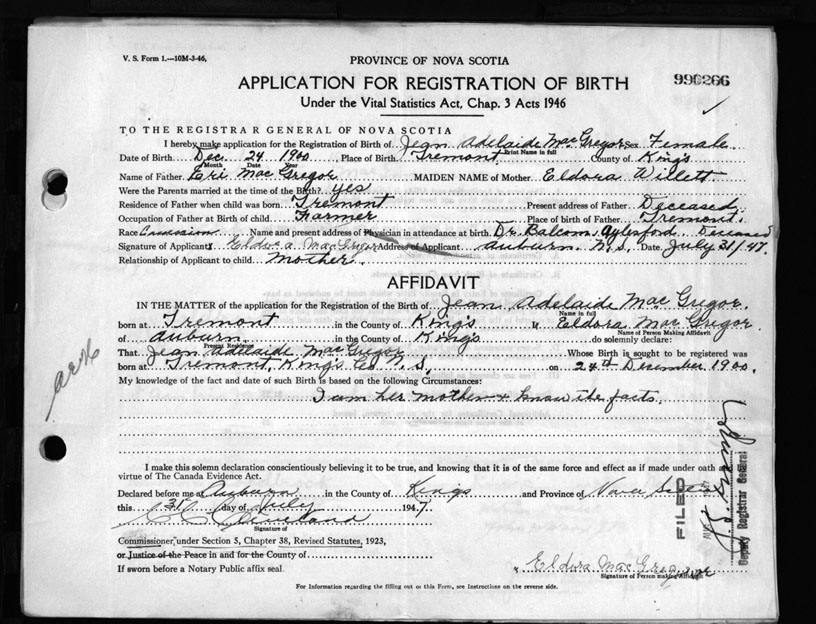 V. S. Form 1.—10M-3-46.
PROVINCE OF NOVA SCOTIA
996266
APPLICATION FOR REGISTRATION OF BIRTH
Under the Vital Statistics Act, Chap. 3 Acts 1946
TO THE REGISTRAR GENERAL OF NOVA SCOTIA
I hereby make application for the Registration of Birth of Jean Adelaide MacGregor Sex Female
Print Name in full
Date of Birth Dec. 24 1900 Place of Birth Tremont County of King's
Month Date Year
Name of Father Eri MacGregor MAIDEN NAME of Mother Eldora Willett
Were the Parents married at the time of the Birth? yes
Residence of Father when child was born Tremont Present address of Father Deceased
Occupation of Father at Birth of child Farmer Place of birth of Father Tremont.
Race Name and present address of Physician in attendance at birth Dr. Balcom, Aylesford Deceased
Signature of Applicant Eldora MacGregor Address of Applicant Auburn N.S. Date July 31/47.
Relationship of Applicant to child Mother.
AFFIDAVIT
IN THE MATTER of the application for the Registration of Birth of Jean Adelaide MacGregor.
Name in full
born at Tremont in the County of King's Eldora MacGregor
Name of Person Making Affidavit
of Auburn in the County of King's do solemnly declare:
Present Residence
That Jean Adelaide MacGregor Whose Birth is sought to be registered was
born at Tremont, King's Co. N.S. on 24th December 1900.
My knowledge of the fact and date of such Birth is based on the following Circumstances:
I am her mother & know the facts.
I make this solemn declaration conscientiously believing it to be true, and knowing that it is of the same force and effect as if made under oath and
virtue of The Canada Evidence Act.
Declared before me at Auburn in the County of Kings and Province of Nova Scotia
this 31 day of July 1947
Cleveland
Signature of
Commissioner, under Section 5, Chapter 38, Revised Statutes, 1923,
or Justice of the Peace in and for the County of
If sworn before a Notary Public affix seal.
Eldora MacGregor
Signature of Person making Affidavit
For Information regarding the filling out of this Form, see Instructions on the reverse side.
FILED
Deputy Registrar General